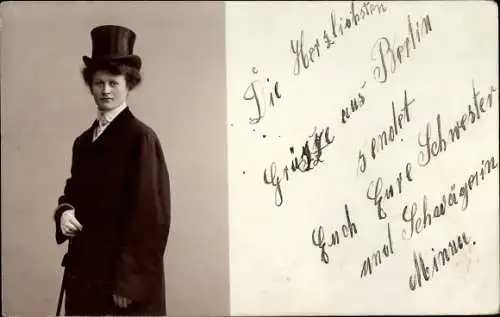 Die Herzlichsten
Grüsse aus Berlin
sendet
Euch Eure Schwester
und Schwägerin
Minna.